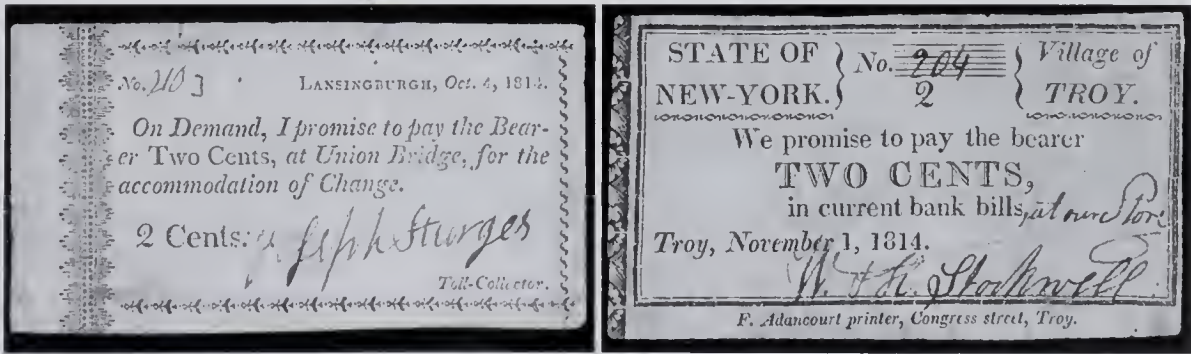 No. 2103
LANSINGBURGH, Oct. 4, 1814.
On Demand, I promise to pay the Bear-
er Two Cents, at Union Bridge, for the
accommodation of Change.
2 Cents. Joseph Sturges
Toll-Collector.
STATE OF
NEW-YORK.
No. 204
2
Village of
TROY.
We promise to pay the bearer
TWO CENTS,
in current bank bills, at our Store
Troy, November 1, 1814.
W. & R. Stockwell
F. Adancourt printer, Congress street, Troy.